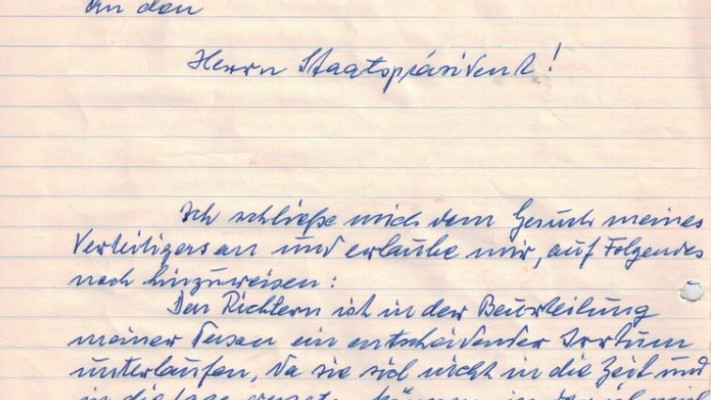 An den
Herrn Staatspräsident!
Ich schließe mich dem Gesuch meines
Verteitigers an und erlaube mir, auf Folgendes
noch hinzuweisen:
Den Richtern ist in der Beurteilung
meiner Person ein entscheidender Irrtum
unterlaufen, da sie sich nicht in die Zeit und
in die Lage versetzen können, in der ich mich